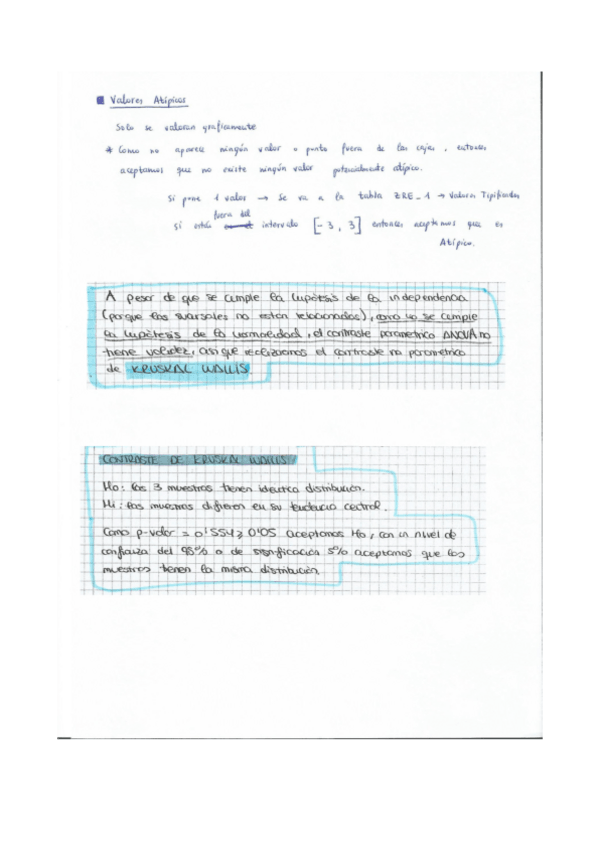 Valores Atípicos
Solo se valoran gráficamente
* Como no aparece ningún valor o punto fuera de las cajas, entonces
aceptamos que no existe ningún valor potencialmente atípico.
Si pone 1 valor → Se va a la tabla ZRE_1 → Valores Tipificados
fuera del
Si está intervalo [-3, 3] entonces aceptamos que es
Atípico.
A pesar de que se cumple la hipótesis de la independencia
(porque las sucursales no están relacionadas), como no se cumple
la hipótesis de la normalidad, el contraste parametrico ANOVA no
tiene validez, así que realizamos el contraste no parametrico
de KRUSKAL WALLIS.
CONTRASTE DE KRUSKAL WALLIS
Ho: las 3 muestras tienen identica distribución.
Hi: las muestras difieren en su tendencia central.
Como p-valor = 0'554 ≥ 0'05 aceptamos Ho, con un nivel de
confianza del 95% o de significación 5% aceptamos que las
muestras tienen la misma distribución.